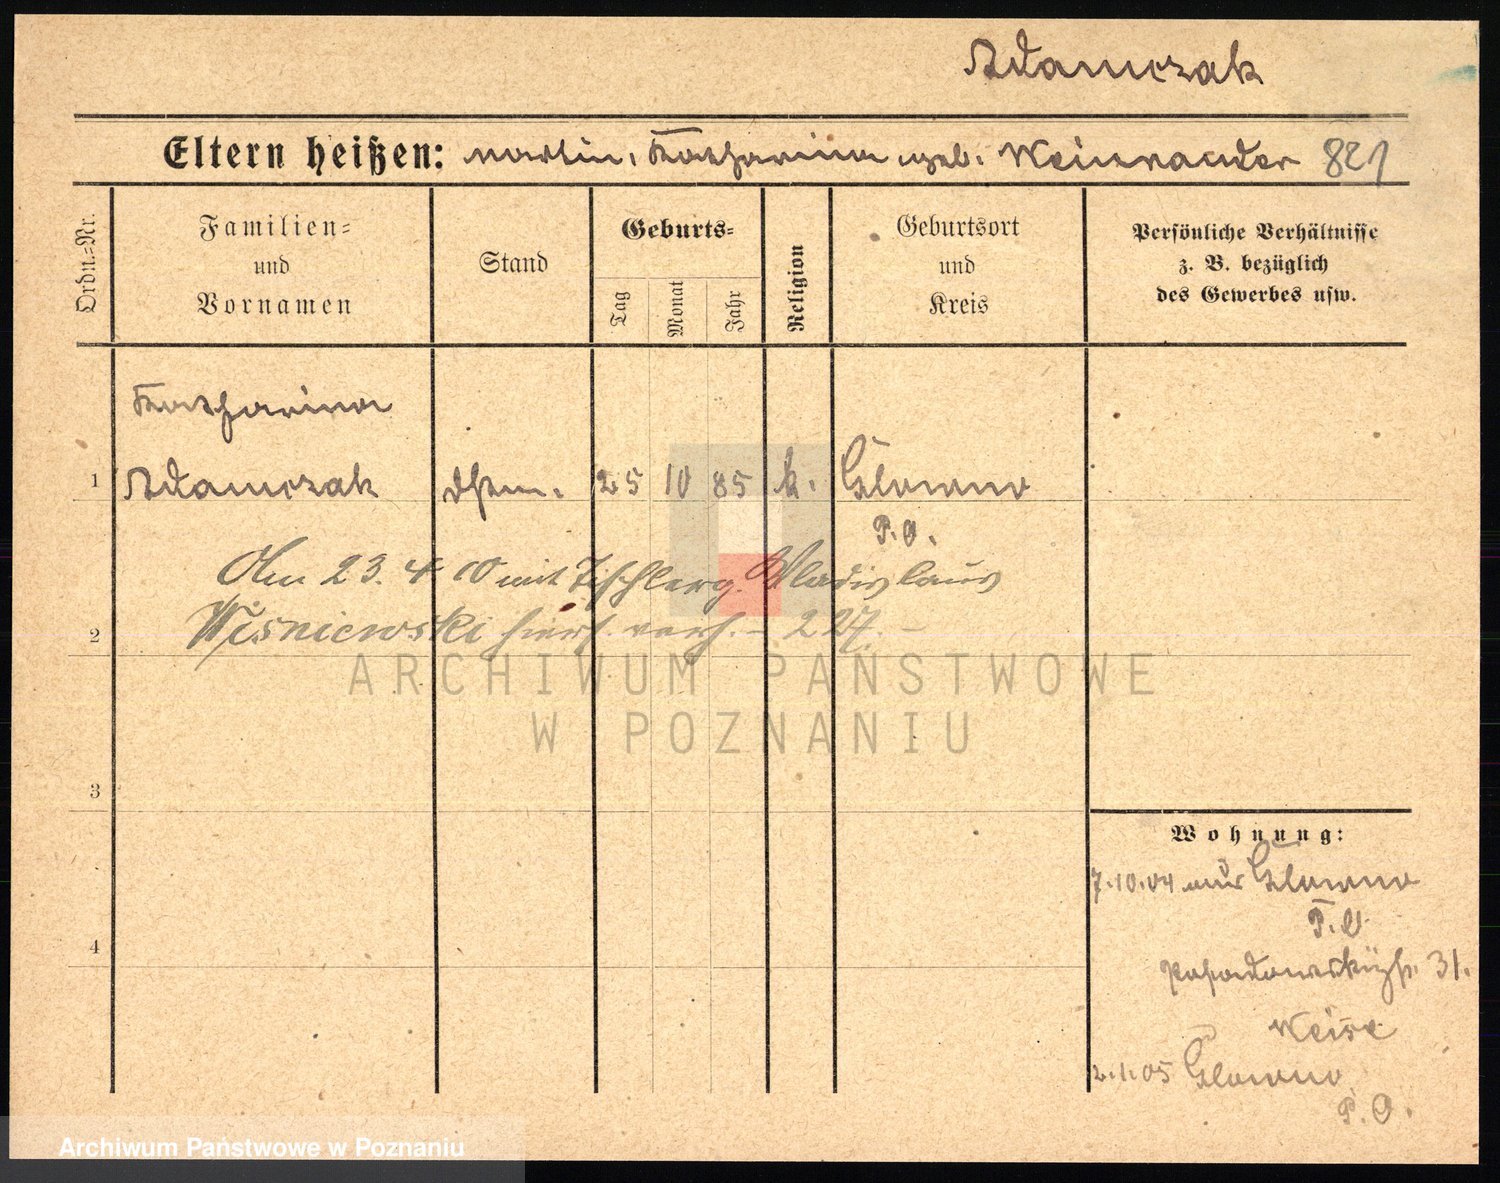 Adamczak
Eltern heißen: Martin, Katharina geb. 821
Ordn.-Nr.
Familien-
und
Vornamen
Stand
Geburts-
Tag
Monat
Jahr
Religion
Geburtsort
und
Kreis
Persönliche Verhältnisse
z. B. bezüglich
des Gewerbes usw.
Katharina
1 Adamczak 25 10 85 k. Glowno
P. O.
Am 23. 4 10 mit Tischlerg. Wladislaus
2 Wisniewski hiers. verh. - 227. -
ARCHIWUM PAŃSTWOWE
W POZNANIU
3
Wohnung:
7.10.04 aus Glowno
P. O.
4
Posadowskystr. 31.
Weise
2.1.05 Glowno
P. O.
Archiwum Państwowe w Poznaniu